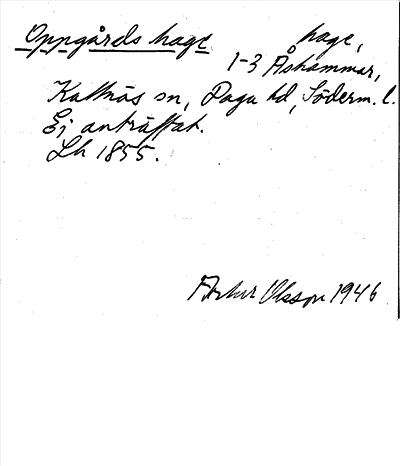 Oppgårds hage hage,
1-3 Åshammar,
Kattnäs sn, Daga hd, Söderm. l.
Ej anträffat.
Lh 1855.
Artur Olsson 1946